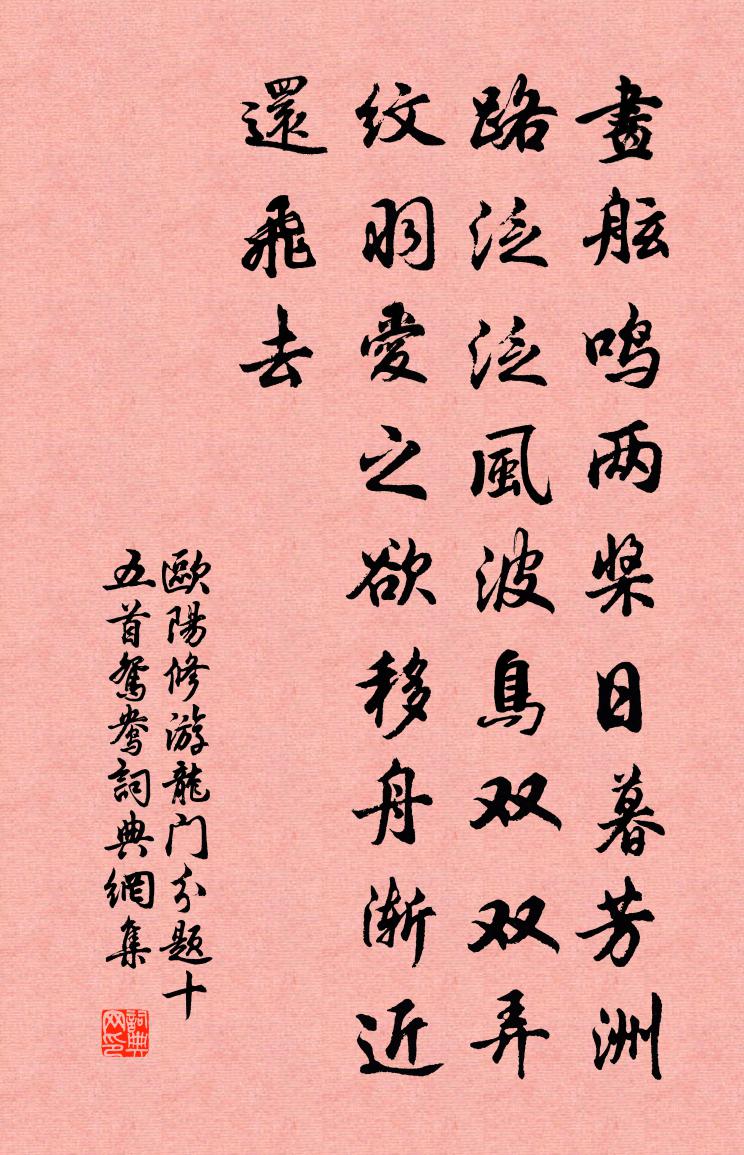 畫舷鳴两槳日暮芳洲
路泛泛風波鳥双双弄
紋羽愛之欲移舟渐近
還飛去
歐陽修游龍门分题十
五首鴛鴦詞典網集
詞典
网印